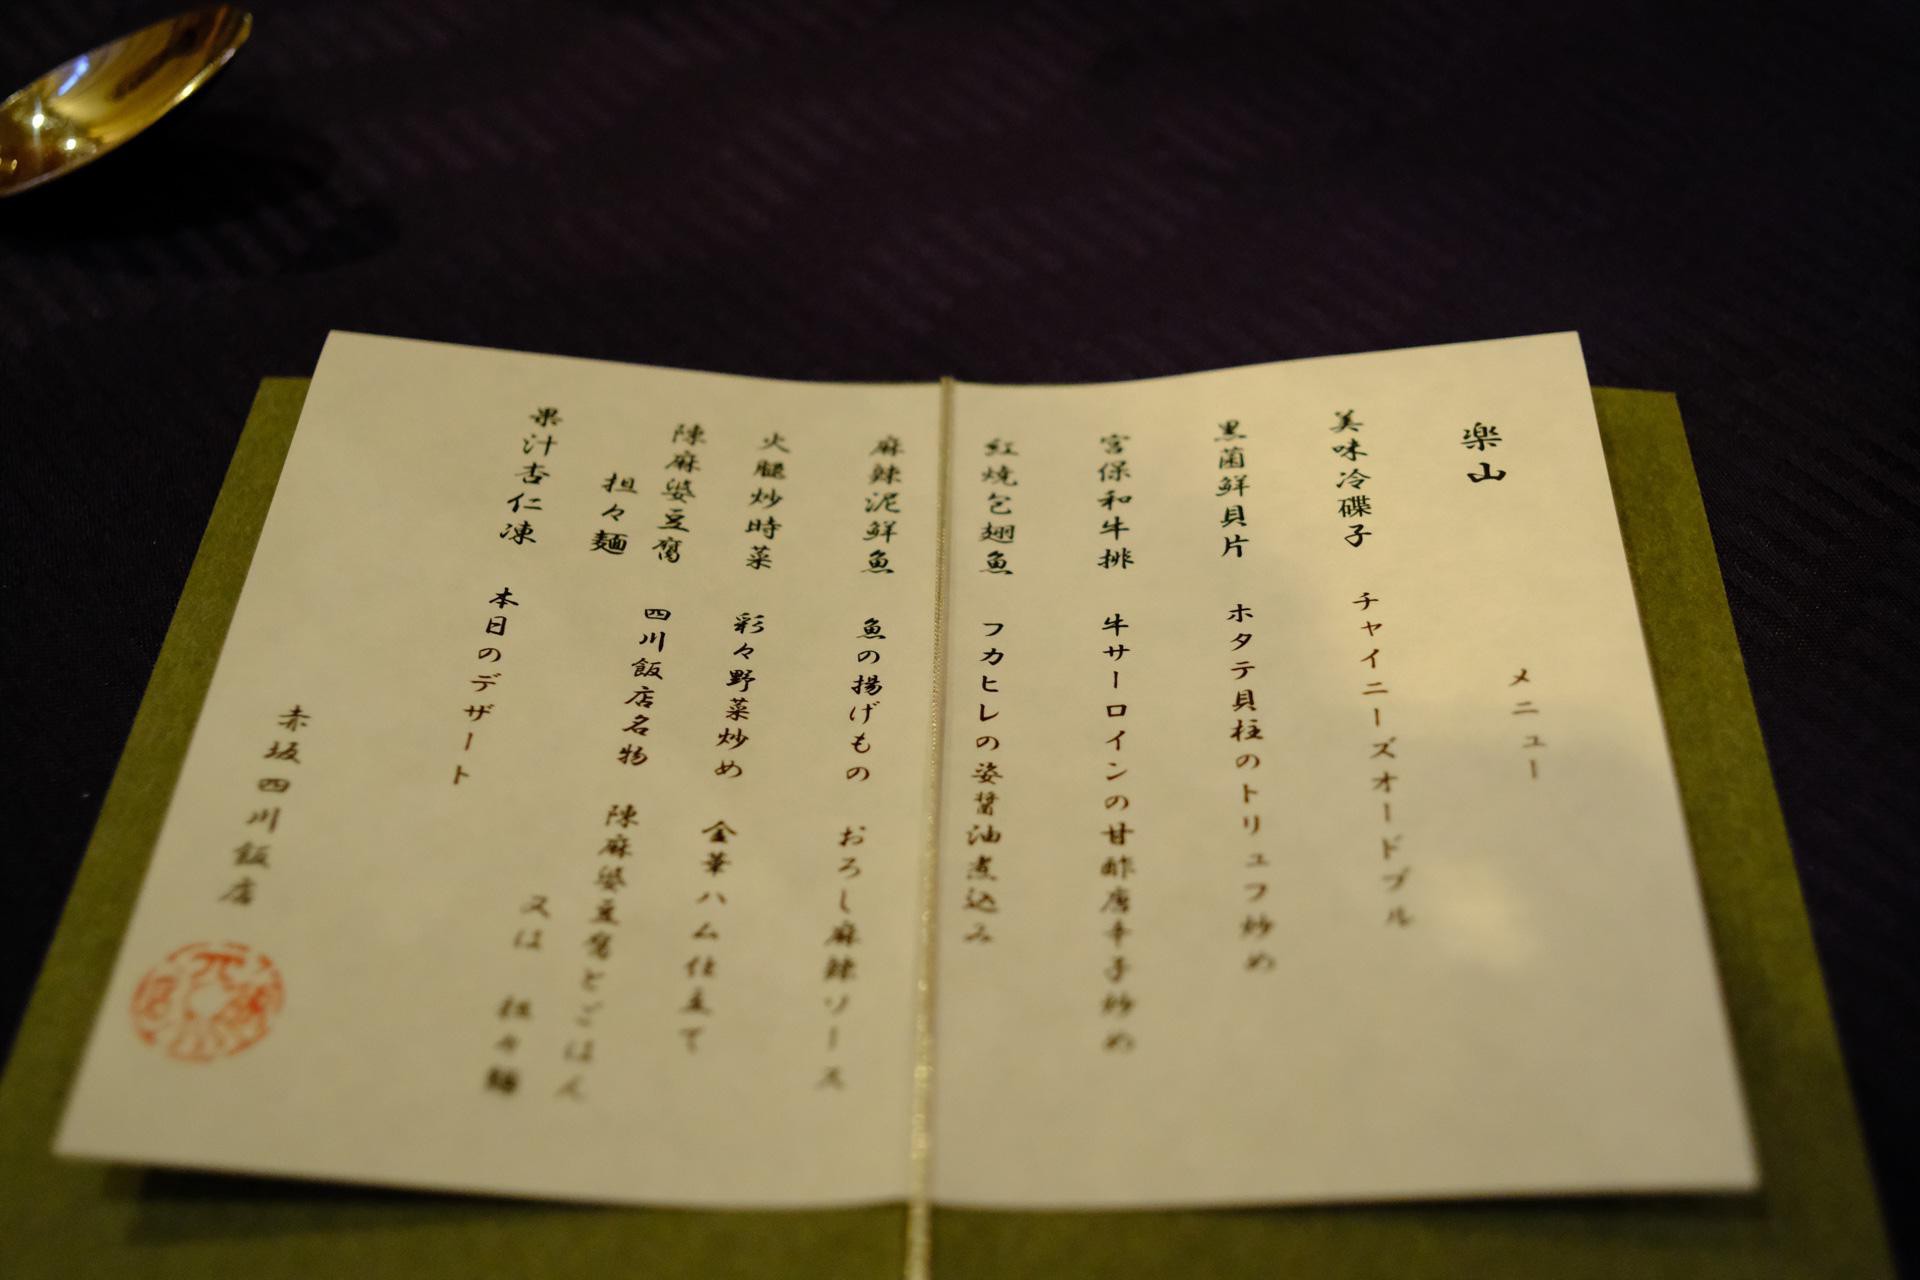 楽山 メニュー
美味冷碟子 チャイニーズオードブル
黒菌鮮貝片 ホタテ貝柱のトリュフ炒め
宮保和牛排 牛サーロインの甘酢唐辛子炒め
紅焼包翅魚 フカヒレの姿醤油煮込み
麻辣泥鮮魚 魚の揚げもの おろし麻辣ソース
火腿炒時菜 彩々野菜炒め 金華ハム仕立て
陳麻婆豆腐 四川飯店名物 陳麻婆豆腐とごはん
担々麺 又は 担々麺
果汁杏仁凍 本日のデザート
赤坂四川飯店